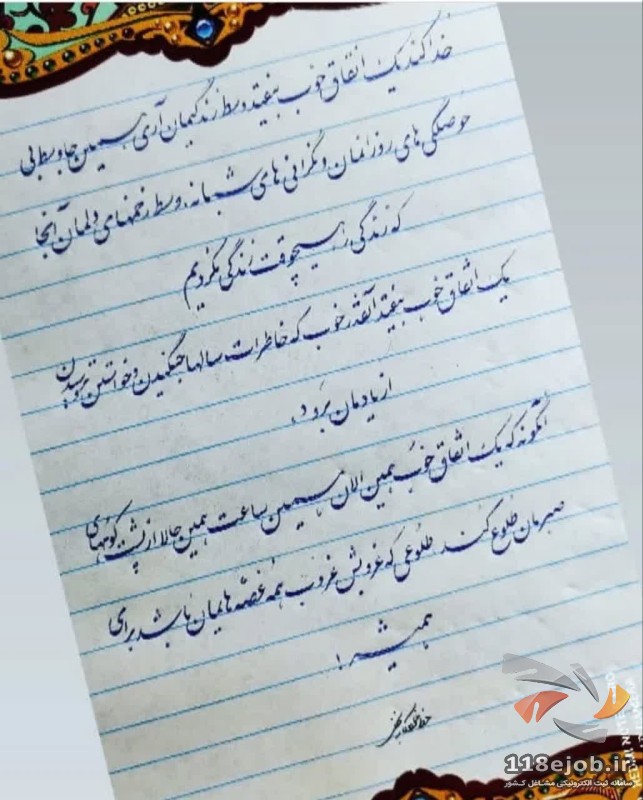 خدا کند یک اتفاق خوب بیفتد وسط زندگیمان آری همین جا وسط بی
حوصلگی های روزانمان و نگرانی های شبانه. وسط زخمهای دلمان آنجا
که زندگی را هیچوقت زندگی نکردیم
یک اتفاق خوب بیفتد آنقدر خوب که خاطرات سالها جنگیدن و خواستن و نرسیدن
از یادمان برود.
آنگونه که یک اتفاق خوب همین الان همین ساعت همین حالا از پشت کوههای
صبرمان طلوع کند طلوعی که غروبش غروب همه غصه هایمان باشد برای
همیشه!
118ejob.ir
سامانه ثبت الکترونیکی مشاغل کشور